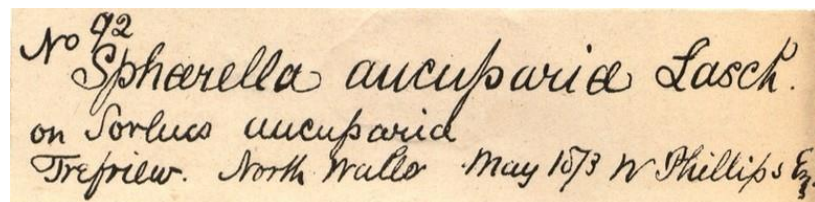 No 92
Sphærella aucuparia Lasch.
on Sorbus aucuparia
Trefriew. North Wales May 1873 W Phillips Esq.